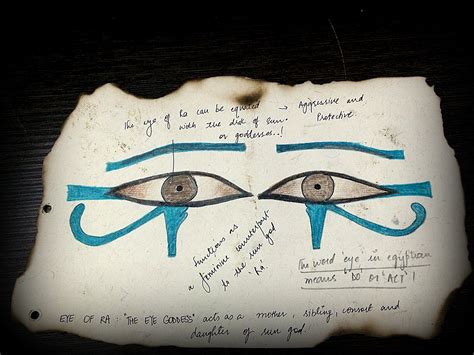 The eye of Ra can be equated → Aggressive and
with the disk of sun. Protective.
or goddesses..!
functions as
a feminine counterpart
to the sun god
'Ra'.
The word 'eye' in egyptian
means 'DO' or 'ACT'!
EYE OF RA : "THE EYE GODDESS" acts as a mother, sibling, consort and
daughter of sun god.